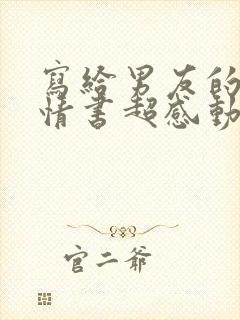 寫給男友的
情書超感動
官二爺